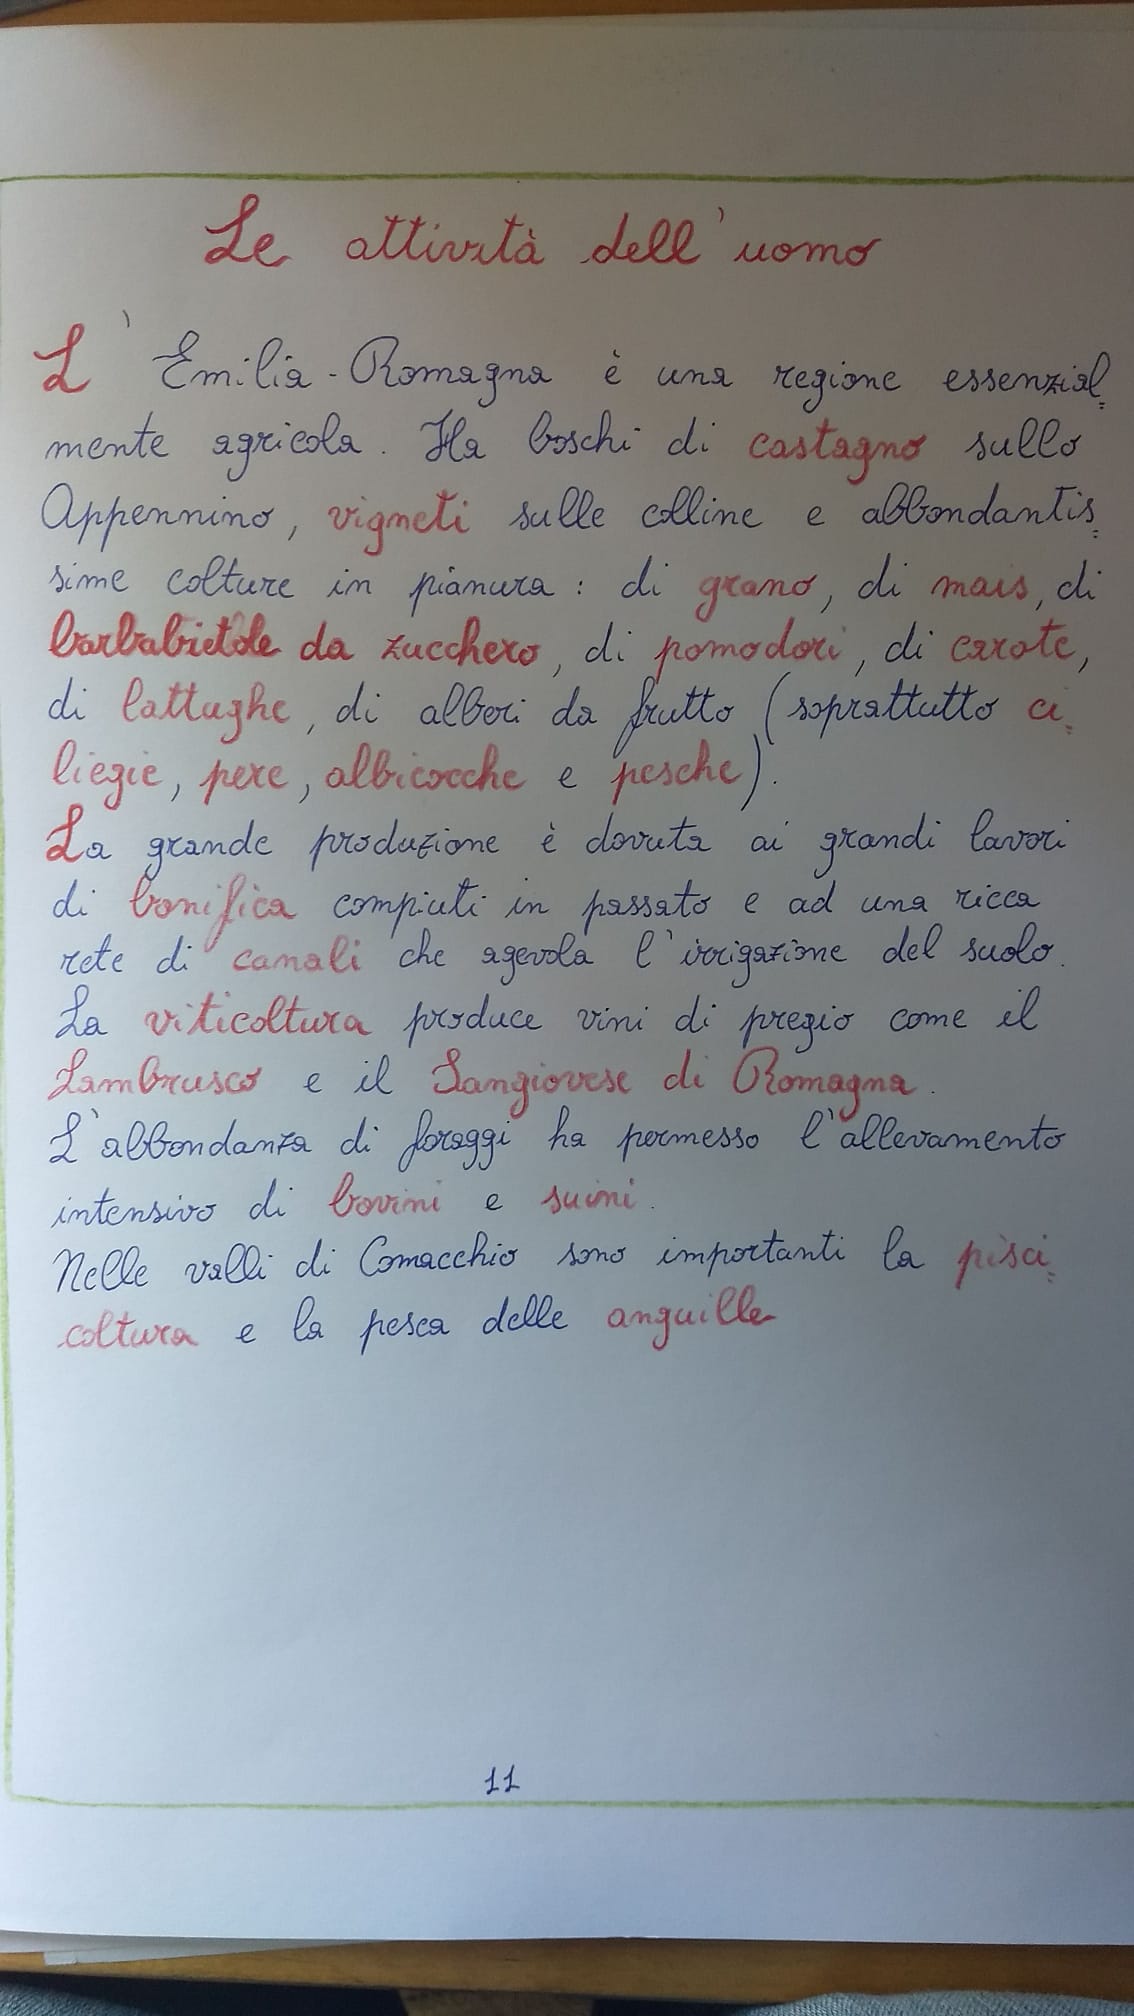 Le attività dell'uomo
L'Emilia-Romagna è una regione essenzial=
mente agricola. Ha boschi di castagno sullo
Appennino, vigneti sulle colline e abbondantis=
sime colture in pianura: di grano, di mais, di
barbabietole da zucchero, di pomodori, di carote,
di lattughe, di alberi da frutto (soprattutto ci=
liegie, pere, albicocche e pesche).
La grande produzione è dovuta ai grandi lavori
di bonifica compiuti in passato e ad una ricca
rete di canali che agevola l'irrigazione del suolo.
La viticoltura produce vini di pregio come il
Lambrusco e il Sangiovese di Romagna.
L'abbondanza di foraggi ha permesso l'allevamento
intensivo di bovini e suini.
Nelle valli di Comacchio sono importanti la pisci=
coltura e la pesca delle anguille
11